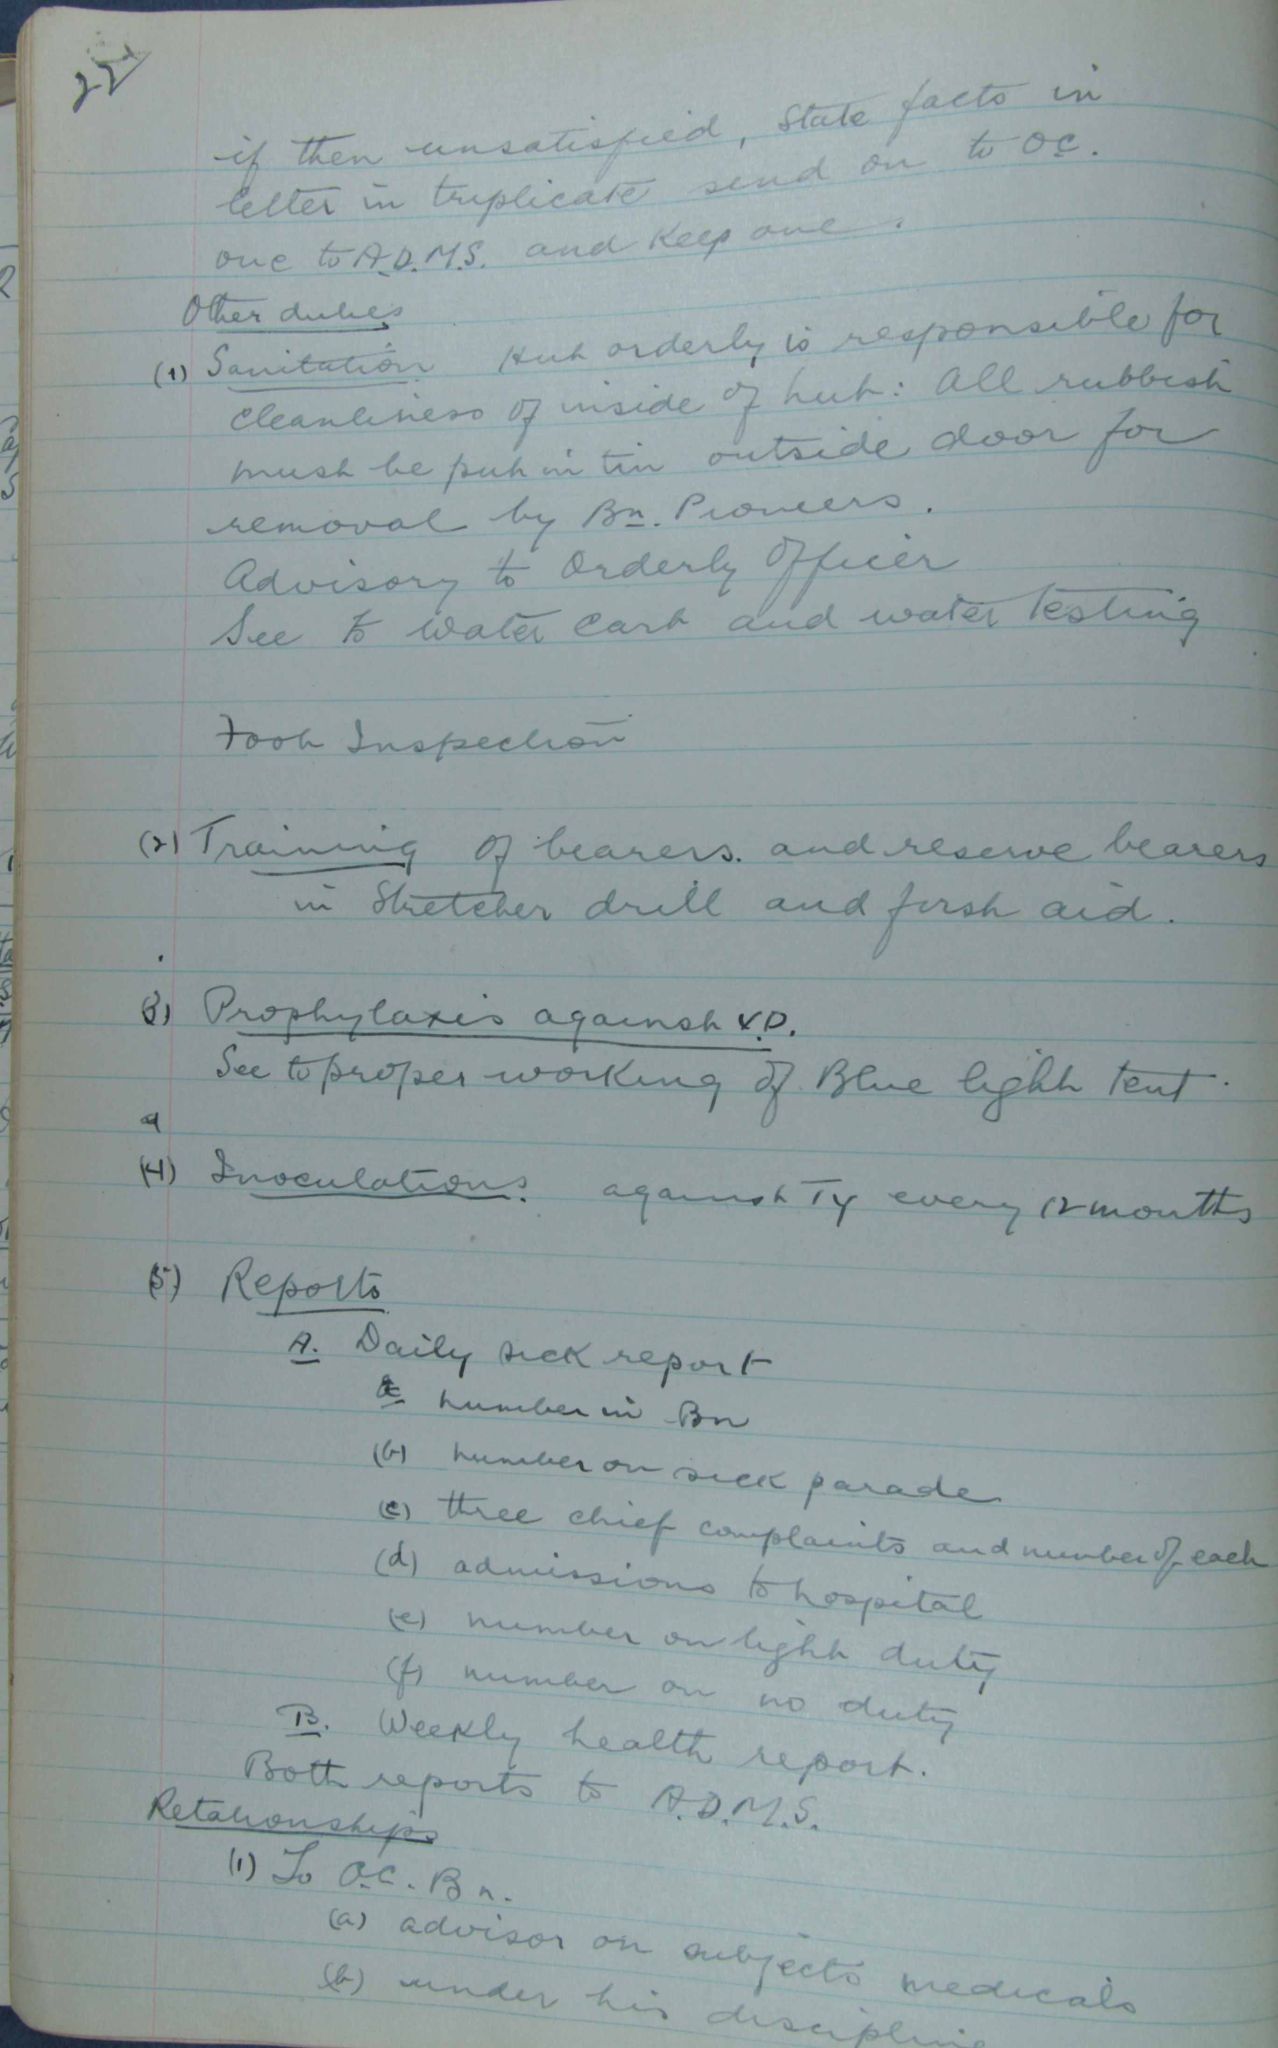 22
if then unsatisfied, state facts in
letter in triplicate send on to O.C.
one to A.D.M.S. and keep one.
Other duties
(1) Sanitation Hut orderly is responsible for
cleanliness of inside of hut: All rubbish
must be put in tin outside door for
removal by Bn. Pioneers.
Advisory to Orderly Officer
See to water cart and water testing
Foot Inspection
(2) Training of bearers. and reserve bearers
in Stretcher drill and first aid.
(3) Prophylaxis against V.D.
See to proper working of Blue light tent.
(4) Inoculations. against Ty every 12 months
(5) Reports
A. Daily sick report
a number in Bn
(b) number on sick parade
(c) three chief complaints and number of each
(d) admissions to hospital
(e) number on light duty
(f) number on no duty
B. Weekly health report.
Both reports to A.D.M.S.
Relationships
(1) To O.C. Bn.
(a) advisor on subjects medicals
(b) under his discipline